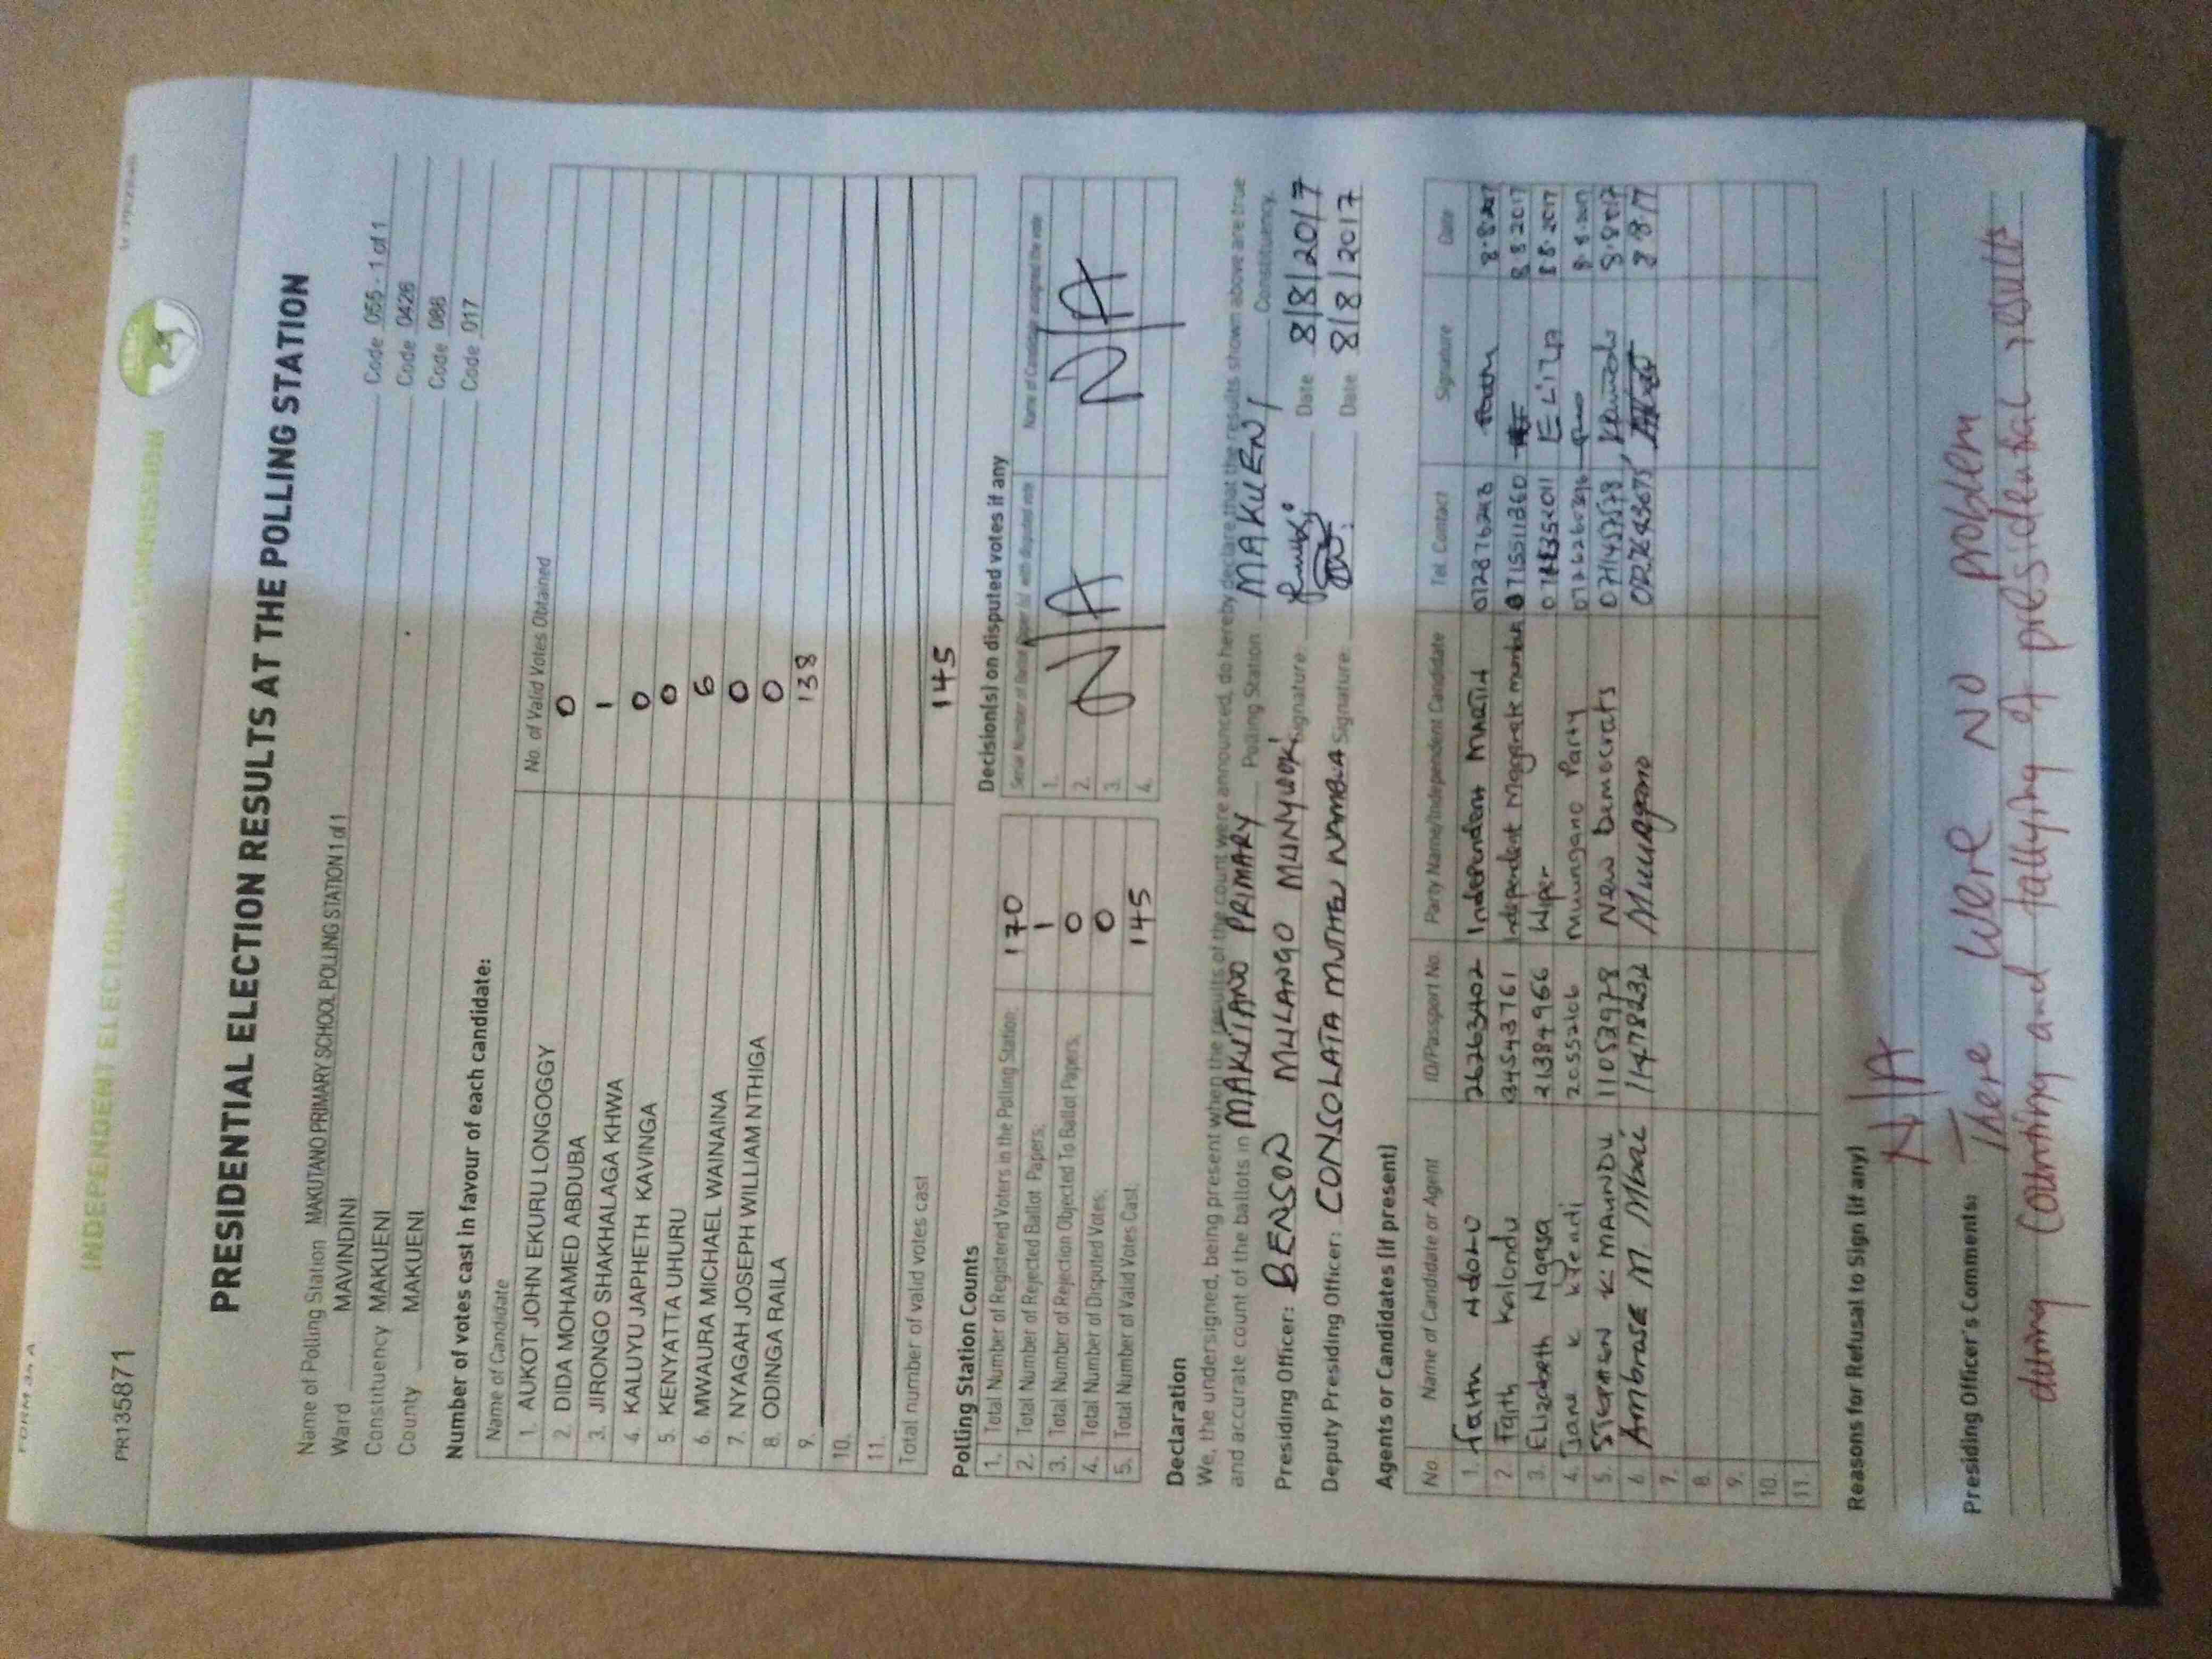 FORM 34 A
INDEPENDENT ELECTORAL AND BOUNDARIES COMMISSION
PR135871
PRESIDENTIAL ELECTION RESULTS AT THE POLLING STATION
Name of Polling Station MAKUTANO PRIMARY SCHOOL POLLING STATION 1 of 1 Code 055 - 1 of 1
Ward MAVINDINI Code 0426
Constituency MAKUENI Code 086
County MAKUENI Code 017
Number of votes cast in favour of each candidate:
Name of Candidate No. of Valid Votes Obtained
1. AUKOT JOHN EKURU LONGOGGY 0
2. DIDA MOHAMED ABDUBA 1
3. JIRONGO SHAKHALAGA KHWA 0
4. KALUYU JAPHETH KAVINGA 0
5. KENYATTA UHURU 6
6. MWAURA MICHAEL WAINAINA 0
7. NYAGAH JOSEPH WILLIAM NTHIGA 0
8. ODINGA RAILA 138
9.
10.
11.
Total number of valid votes cast 145
Polling Station Counts
1. Total Number of Registered Voters in the Polling Station: 170
2. Total Number of Rejected Ballot Papers; 1
3. Total Number of Rejection Objected To Ballot Papers; 0
4. Total Number of Disputed Votes; 0
5. Total Number of Valid Votes Cast; 145
Decision(s) on disputed votes if any
Serial Number of Ballot Paper (s) with disputed vote Name of Candidate assigned the vote
1.
2. N/A N/A
3.
4.
Declaration
We, the undersigned, being present when the results of the count were announced, do hereby declare that the results shown above are true
and accurate count of the ballots in MAKUTANO PRIMARY Polling Station MAKUENI Constituency.
Presiding Officer: BENSON MULANGO MUNYWOKI Signature: Date 8/8/2017
Deputy Presiding Officer: CONSOLATA MUTHEU NAMBA Signature: Date 8/8/2017
Agents or Candidates (if present)
No. Name of Candidate or Agent ID/Passport No. Party Name/Independent Candidate Tel. Contact Signature Date
1. Faith 26263402 Independent MARTIN 0728762 8.8.2017
2. Faith Kalondu 34543761 Independent 0715511360 8 8 2017
3. Elizabeth Ngasa 21384966 Wiper ELIZA 8 8.2017
4. Jane K Kyendi Muungano Party 8.8.2017
5. STEPHEN KIMAUNDU 11052978 New Democrats 8.8.2017
6. Ambrose M. Mbai 11478232 Muungano 8 8/17
7.
8.
9.
10.
11.
Reasons for Refusal to Sign (if any)
N/A
Presiding Officer's Comments: There were NO problem
during counting and tallying of presidential results